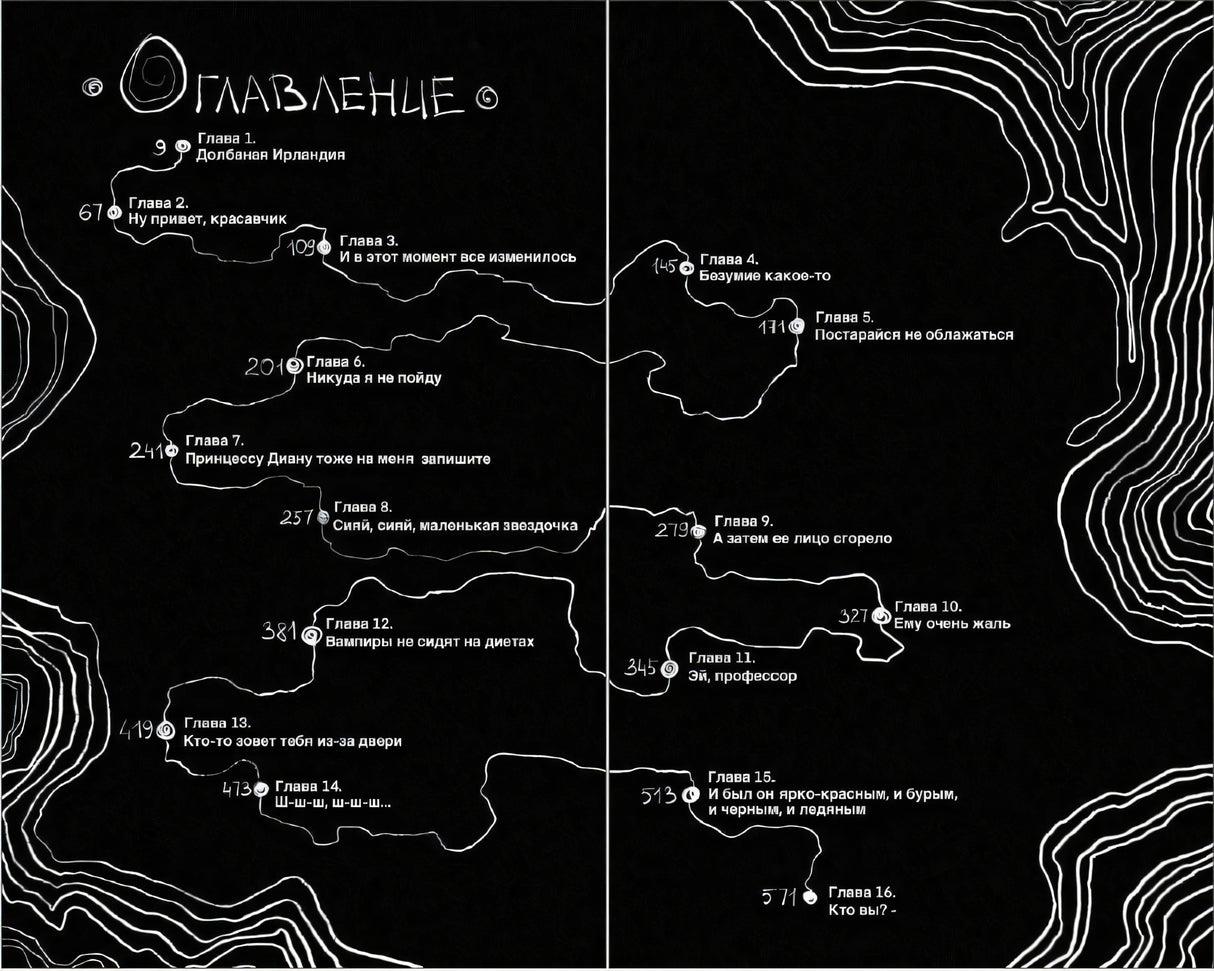 ОГЛАВЛЕНИЕ
9
Глава 1.
Долбаная Ирландия
67
Глава 2.
Ну привет, красавчик
109
Глава 3.
И в этот момент все изменилось
145
Глава 4.
Безумие какое-то
171
Глава 5.
Постарайся не облажаться
201
Глава 6.
Никуда я не пойду
241
Глава 7.
Принцессу Диану тоже на меня запишите
257
Глава 8.
Сияй, сияй, маленькая звездочка
279
Глава 9.
А затем ее лицо сгорело
327
Глава 10.
Ему очень жаль
345
Глава 11.
Эй, профессор
381
Глава 12.
Вампиры не сидят на диетах
419
Глава 13.
Кто-то зовет тебя из-за двери
473
Глава 14.
Ш-ш-ш, ш-ш-ш...
513
Глава 15.
И был он ярко-красным, и бурым,
и черным, и ледяным
571
Глава 16.
Кто вы? -